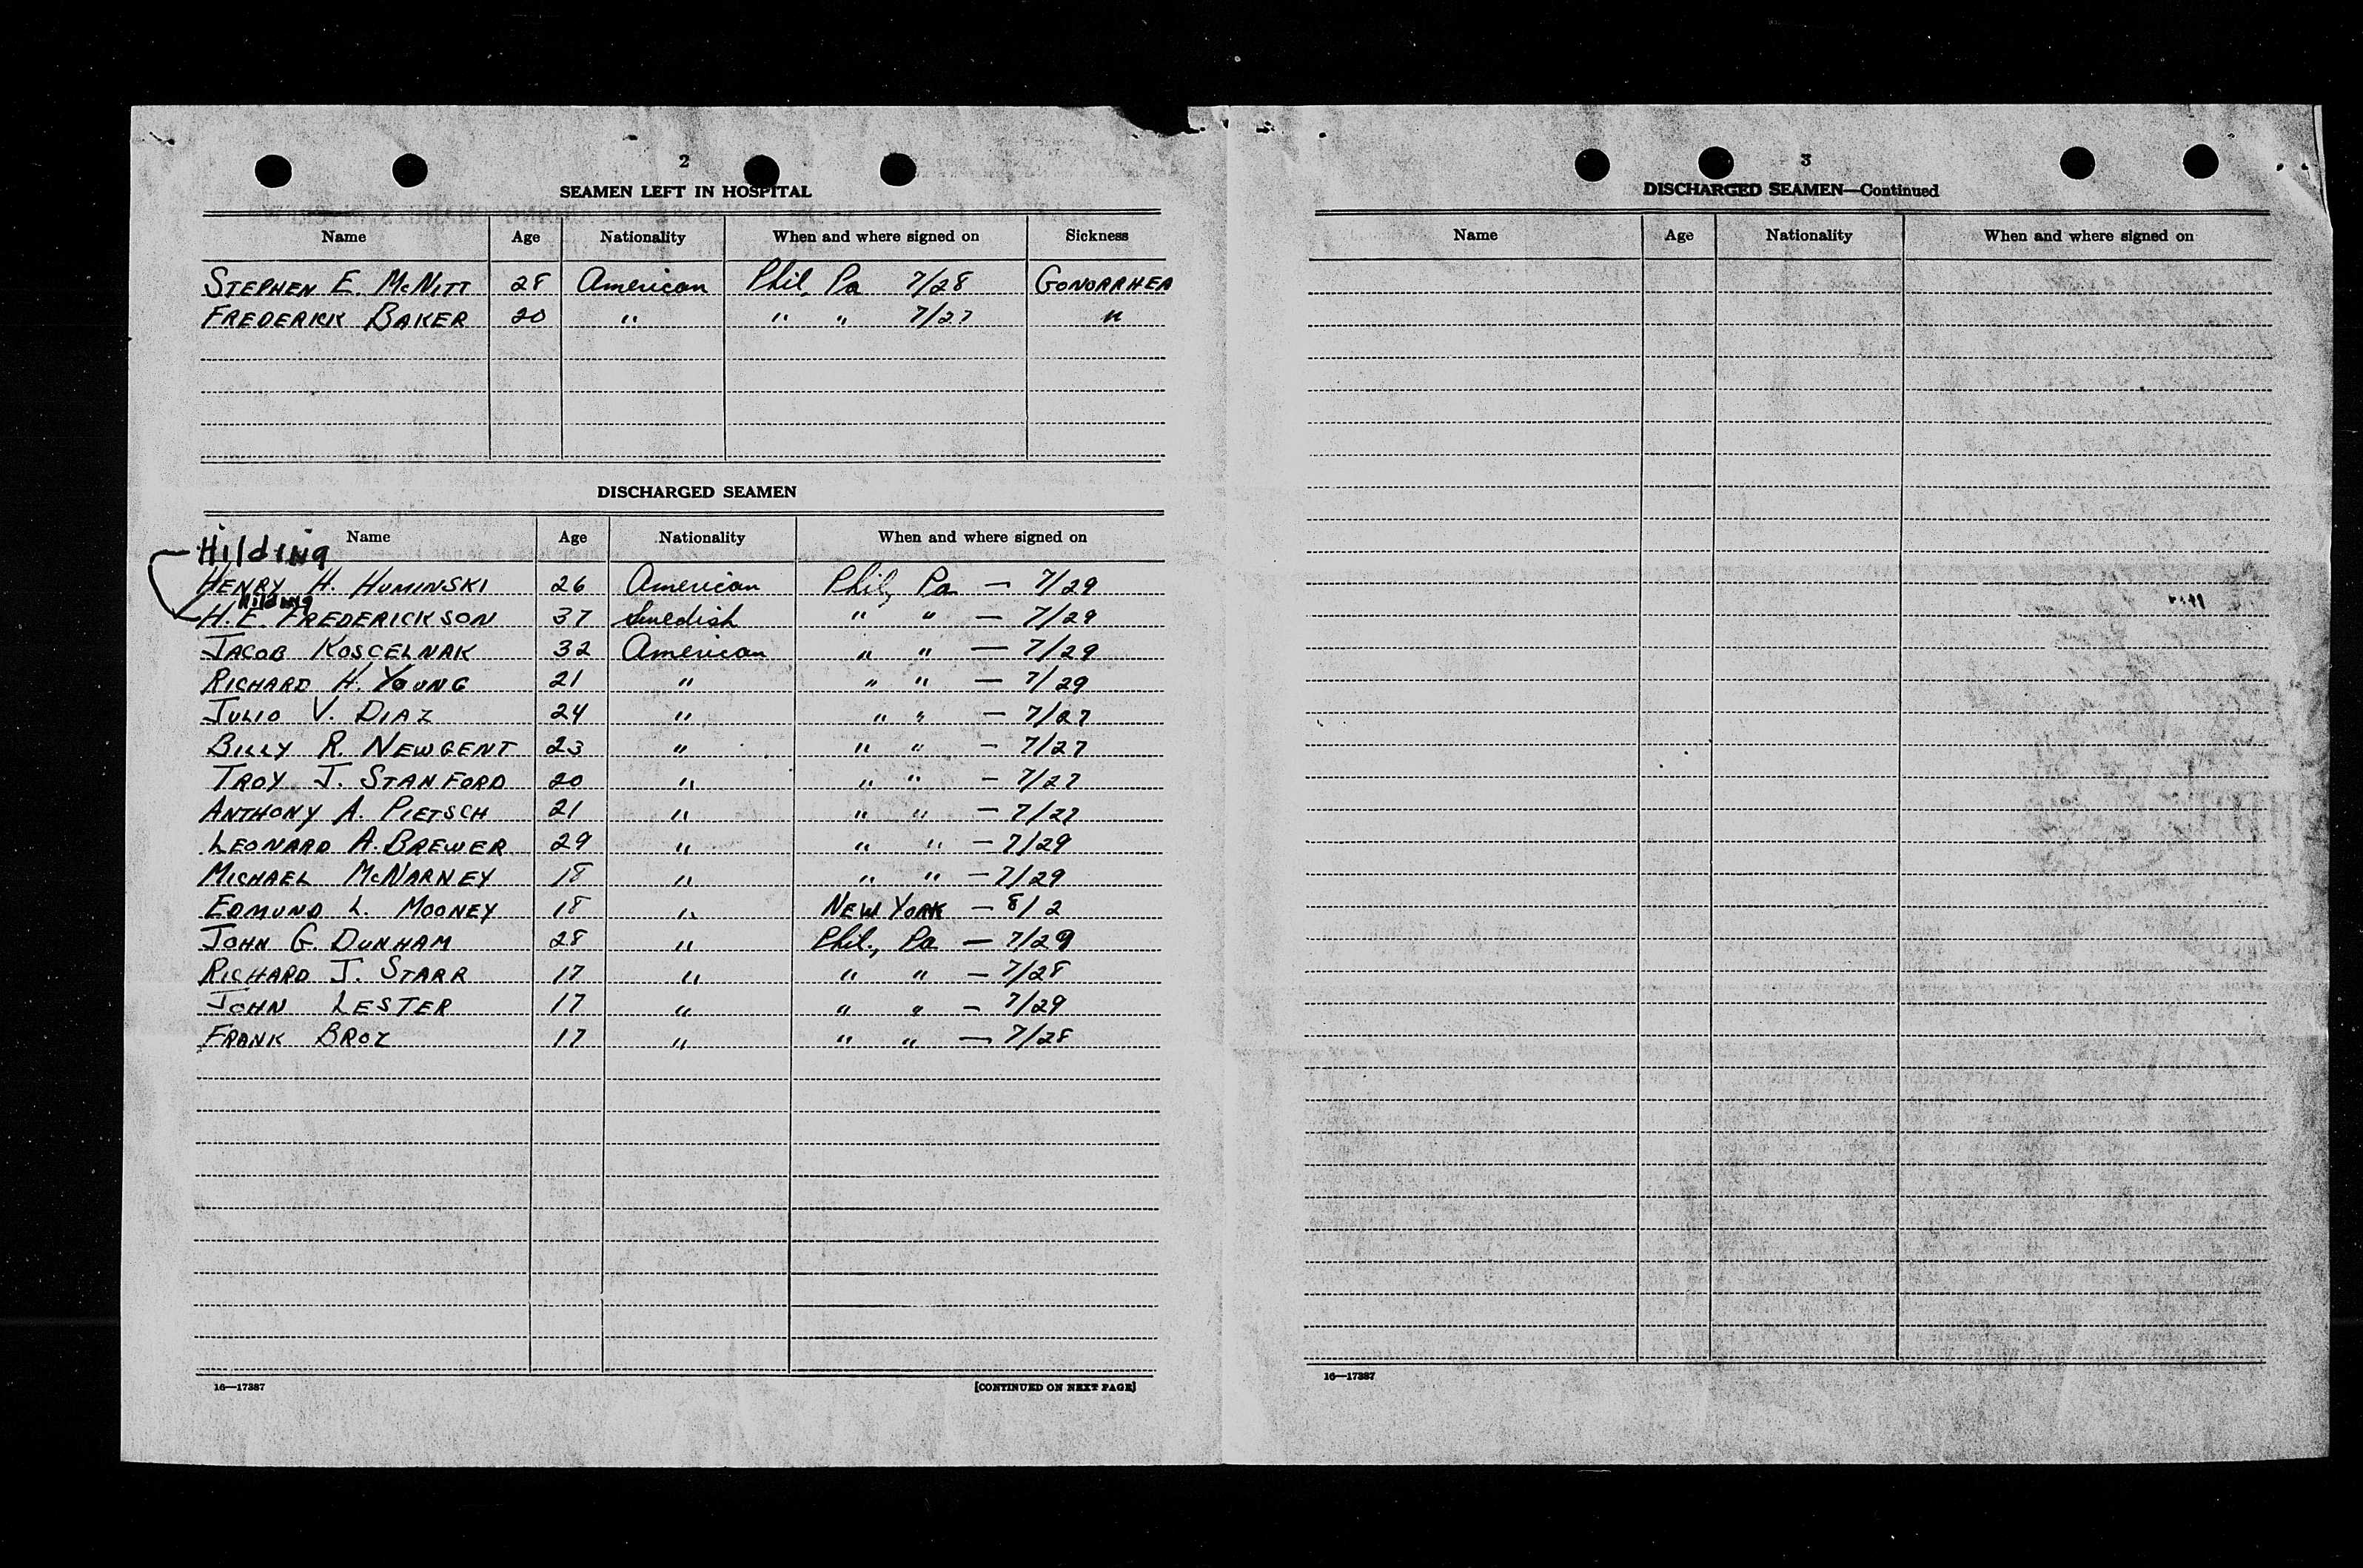 2
SEAMEN LEFT IN HOSPITAL
Name Age Nationality When and where signed on Sickness
STEPHEN E. McNITT 28 American Phil, Pa 7/28 GONORRHEA
FREDERICK BAKER 20 " " " 7/27 "
DISCHARGED SEAMEN
Name Age Nationality When and where signed on
Hilding
HENRY H. HUMINSKI 26 American Phil, Pa — 7/29
Hilding
H.E. FREDERICKSON 37 Swedish " " — 7/29
JACOB KOSCELNAK 32 American " " — 7/29
RICHARD H. YOUNG 21 " " " — 7/29
JULIO V. DIAZ 24 " " " — 7/27
BILLY R. NEWGENT 23 " " " — 7/27
TROY J. STANFORD 20 " " " — 7/27
ANTHONY A. PIETSCH 21 " " " — 7/27
LEONARD A. BREWER 29 " " " — 7/29
MICHAEL McNARNEY 18 " " " — 7/29
EDMUND L. MOONEY 18 " NEW YORK — 8/2
JOHN G. DUNHAM 28 " Phil., Pa — 7/29
RICHARD J. STARR 17 " " " — 7/28
JOHN LESTER 17 " " " — 7/29
FRANK BROZ 17 " " " — 7/28
16—17387 [CONTINUED ON NEXT PAGE]
3
DISCHARGED SEAMEN—Continued
Name Age Nationality When and where signed on
16—17387